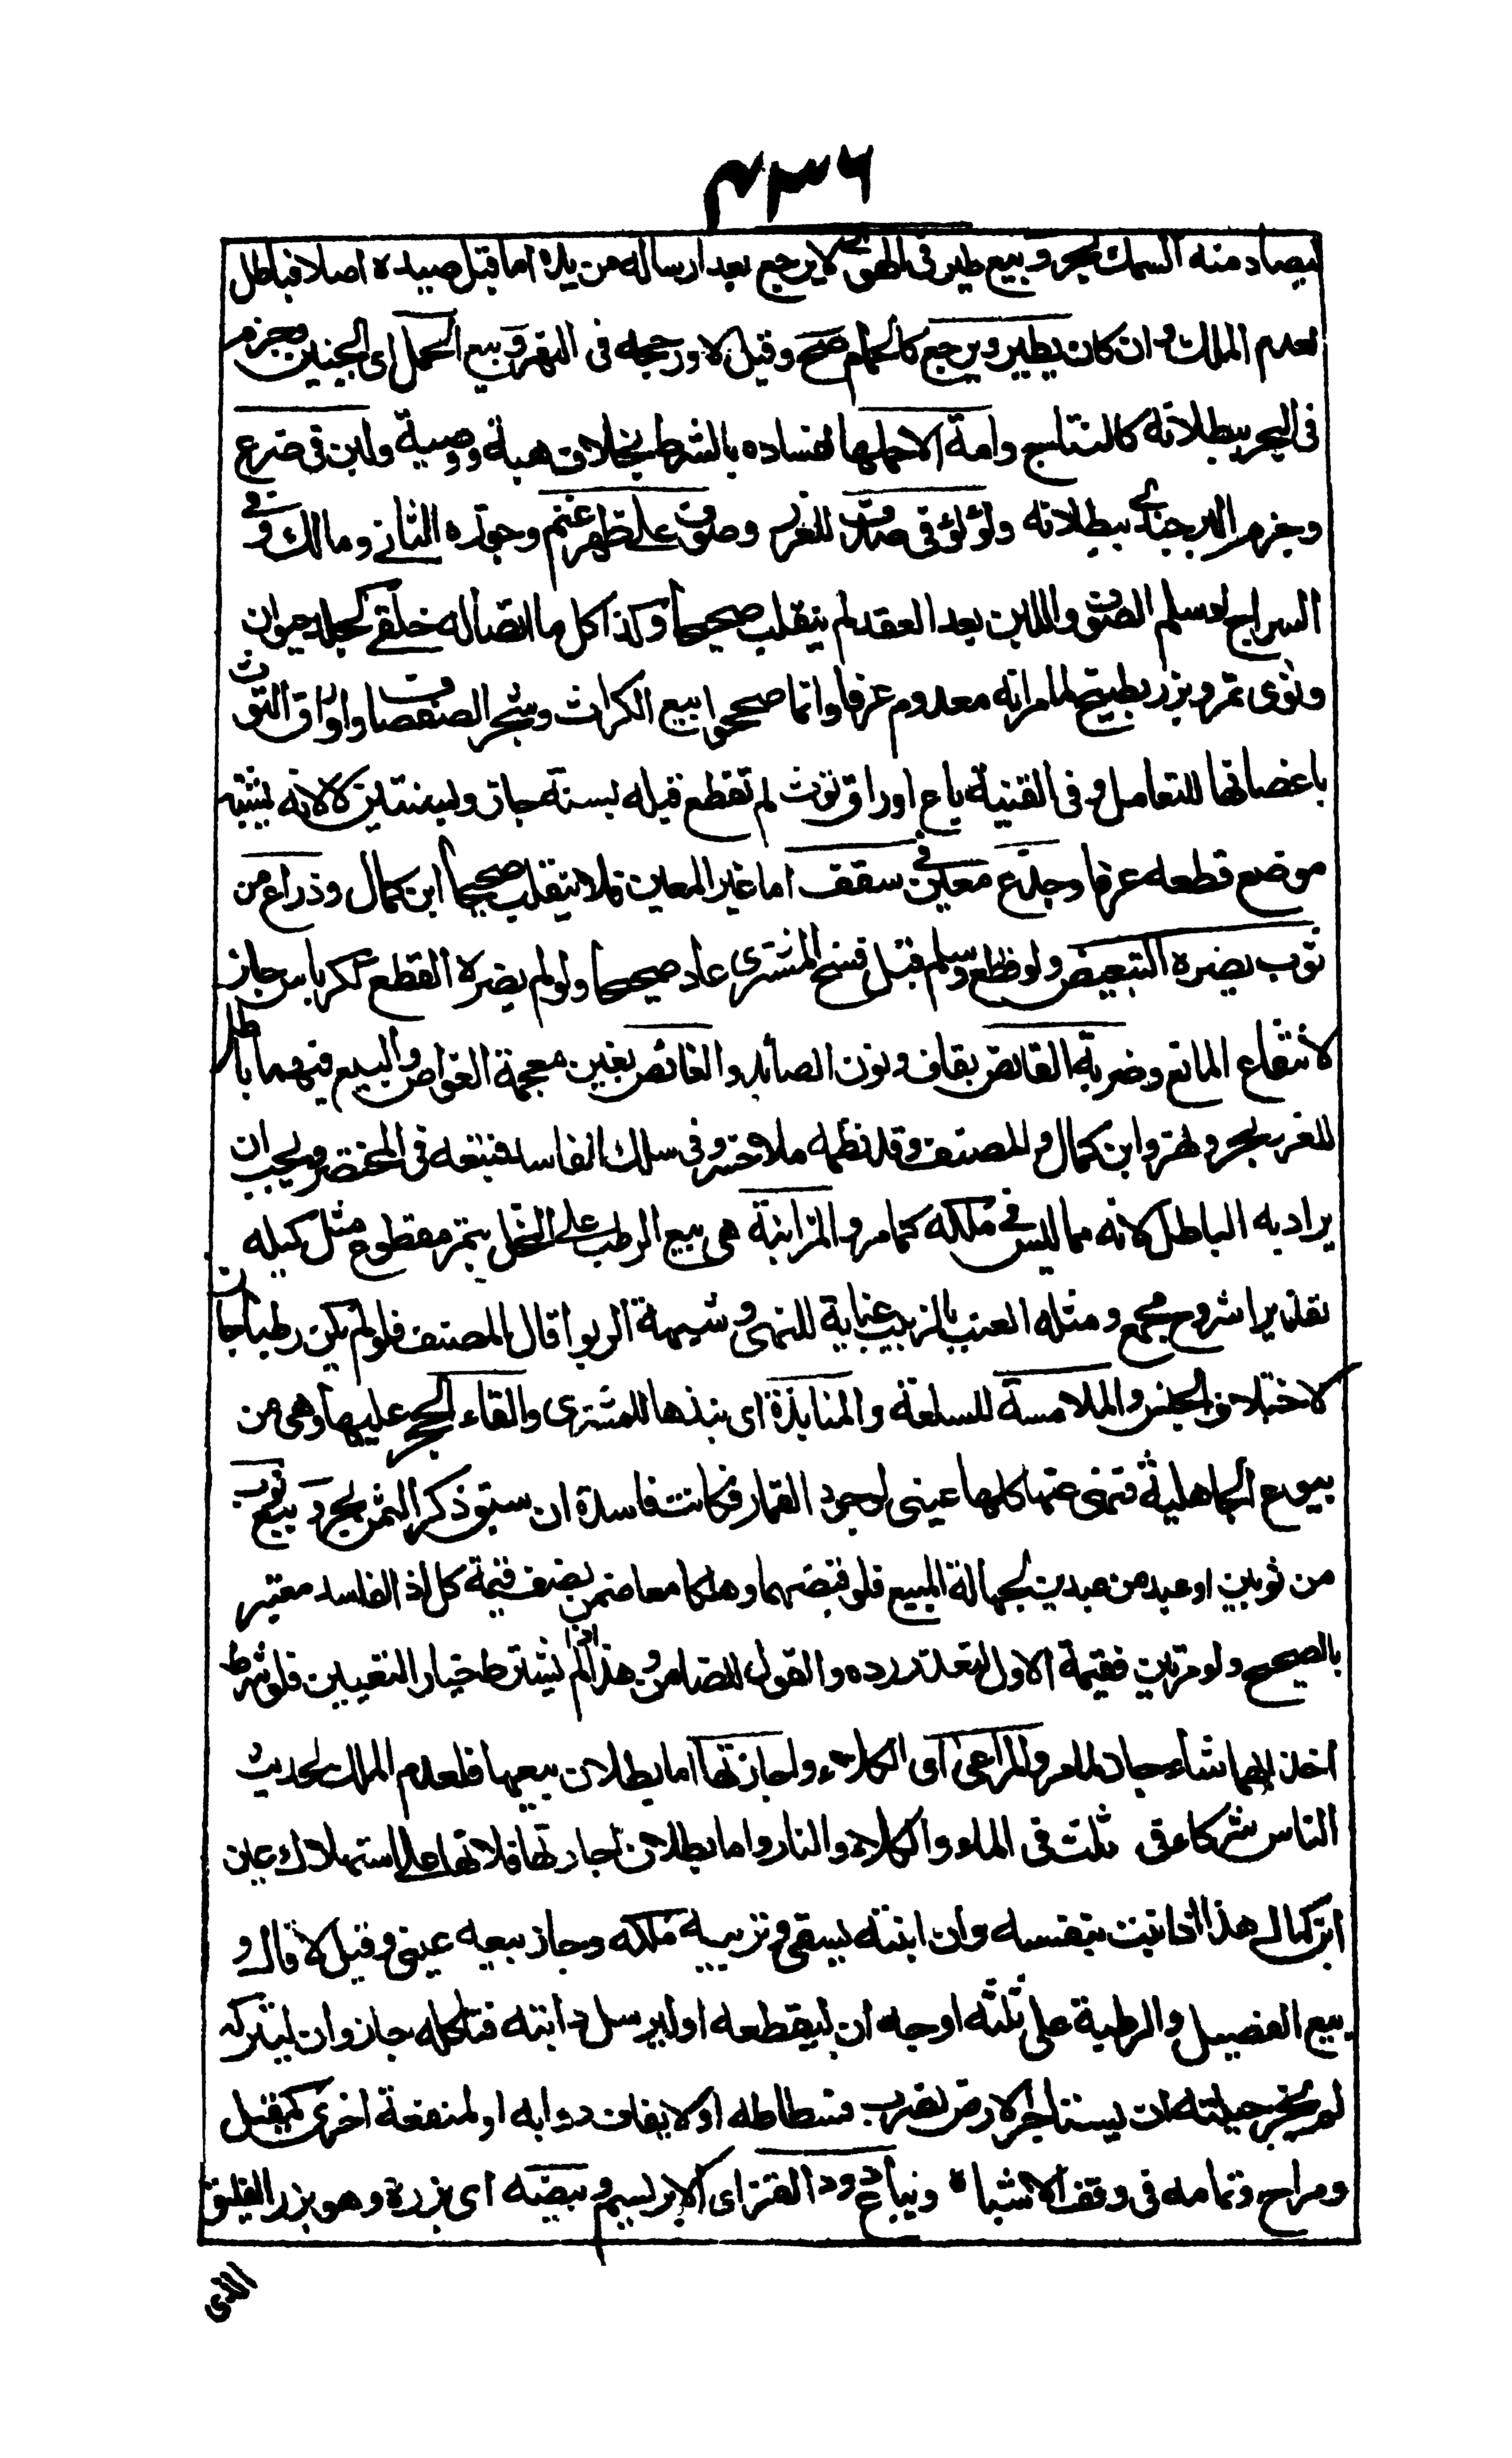 ٤٣٦
ليصاد منه السمك بحر وبيع طير فى الهوى لا يرجع بعد ارساله من يده اما قبل صيده اصلا فباطل
لعدم الملك وان كان يطير ويرجع كالحمام صح وقيل لا ورجحه فى النهر وبيع الحمل اى الجنين وجزم
فى البحر ببطلانه كالنتاج وامة الا حملها لفساده بالشرط بخلاف هبة ووصية ولبن فى ضرع
وجزم البرجندى ببطلانه ولؤلؤ فى صدف للغرر وصوف على ظهر غنم وجوزه الثانى ومالك وفى
السراج لو سلم الصوف واللبن بعد العقد لم ينقلب صحيحا وكذا كل ما اتصاله خلقى كجلد حيوان
ونوى تمر وبزر بطيخ لما مر انه معدوم عرفا وانما صححوا بيع الكراث وشجر الصفصاف واوراق التوت
باغصانها للتعامل وفى القنية باع اوراق توت لم تقطع قبله بسنة جاز وبسنتين لا لانه يشتبه
موضع قطعه عرفا وجذع معين فى سقف اما غير المعين فلا ينقلب صحيحا ابن كمال وذراع من
ثوب يضره التبعيض ولو قطع وسلم قبل فسخ المشترى عاد صحيحا ولو لم يضره القطع ككرباس جاز
لانتفاء المانع وضربة القانص بقاف ونون الصائد والغائص بغين معجمة الغواص والبيع فيهما باطل
للغرر بحر ونهر وابن كمال والمصنف وقد نظمه ملا خسرو فى سلك الفاسد فتبعه فى المختصر ويجب ان
يراد به الباطل لانه مما ليس فى ملكه كما مر والمزابنة هى بيع الرطب على النخل بتمر مقطوع مثل كيله
تقديرا شروح مجمع ومثله العنب بالزبيب عناية للنهى وشبهة الربوا قال المصنف فلو لم يكن رطبا جاز
لاختلاف الجنس والملامسة للسلعة والمنابذة اى نبذها للمشترى والقاء الحجر عليها وهى من
بيوع الجاهلية فنهى عنها كلها عينى لوجود القمار فكانت فاسدة ان سبق ذكر الثمن بحر وبيع ثوب
من ثوبين او عبد من عبدين لجهالة المبيع فلو قبضهما وهلكا معا ضمن نصف قيمة كل اذ الفاسد معتبر
بالصحيح ولو مرتين فقيمة الاول لتعذر رده والقول للضامن وهذا اذا لم يشترط خيار التعيين فلو شرط
اخذ ايهما شاء جاز لما مر والمراعى اى الكلاء واجارتها اما بطلان بيعها فلعدم الملك لحديث
الناس شركاء فى ثلث فى الماء والكلاء والنار واما بطلان اجارتها فلانها على استهلاك عين
ابن كمال هذا اذا نبت بنفسه وان انبته بسقى وتربية ملكه وجاز بيعه عينى وقيل لا قال و
بيع القصيل والرطبة على ثلثه اوجه ان ليقطعه او ليرسل دابته فتاكله جاز وان ليتركه
لم يجز حيلته ان يستاجر الارض لضرب فسطاطه او لايقاف دوابه او لمنفعة اخرى كمقيل
ومراح وتمامه فى وقف الاشباه ويباع دود القز اى الابريسم وبيضه اى بزره وهو بزر الفيلق
الذى